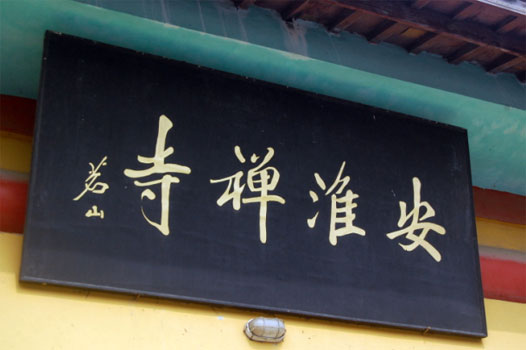 安淮禅寺
茗山